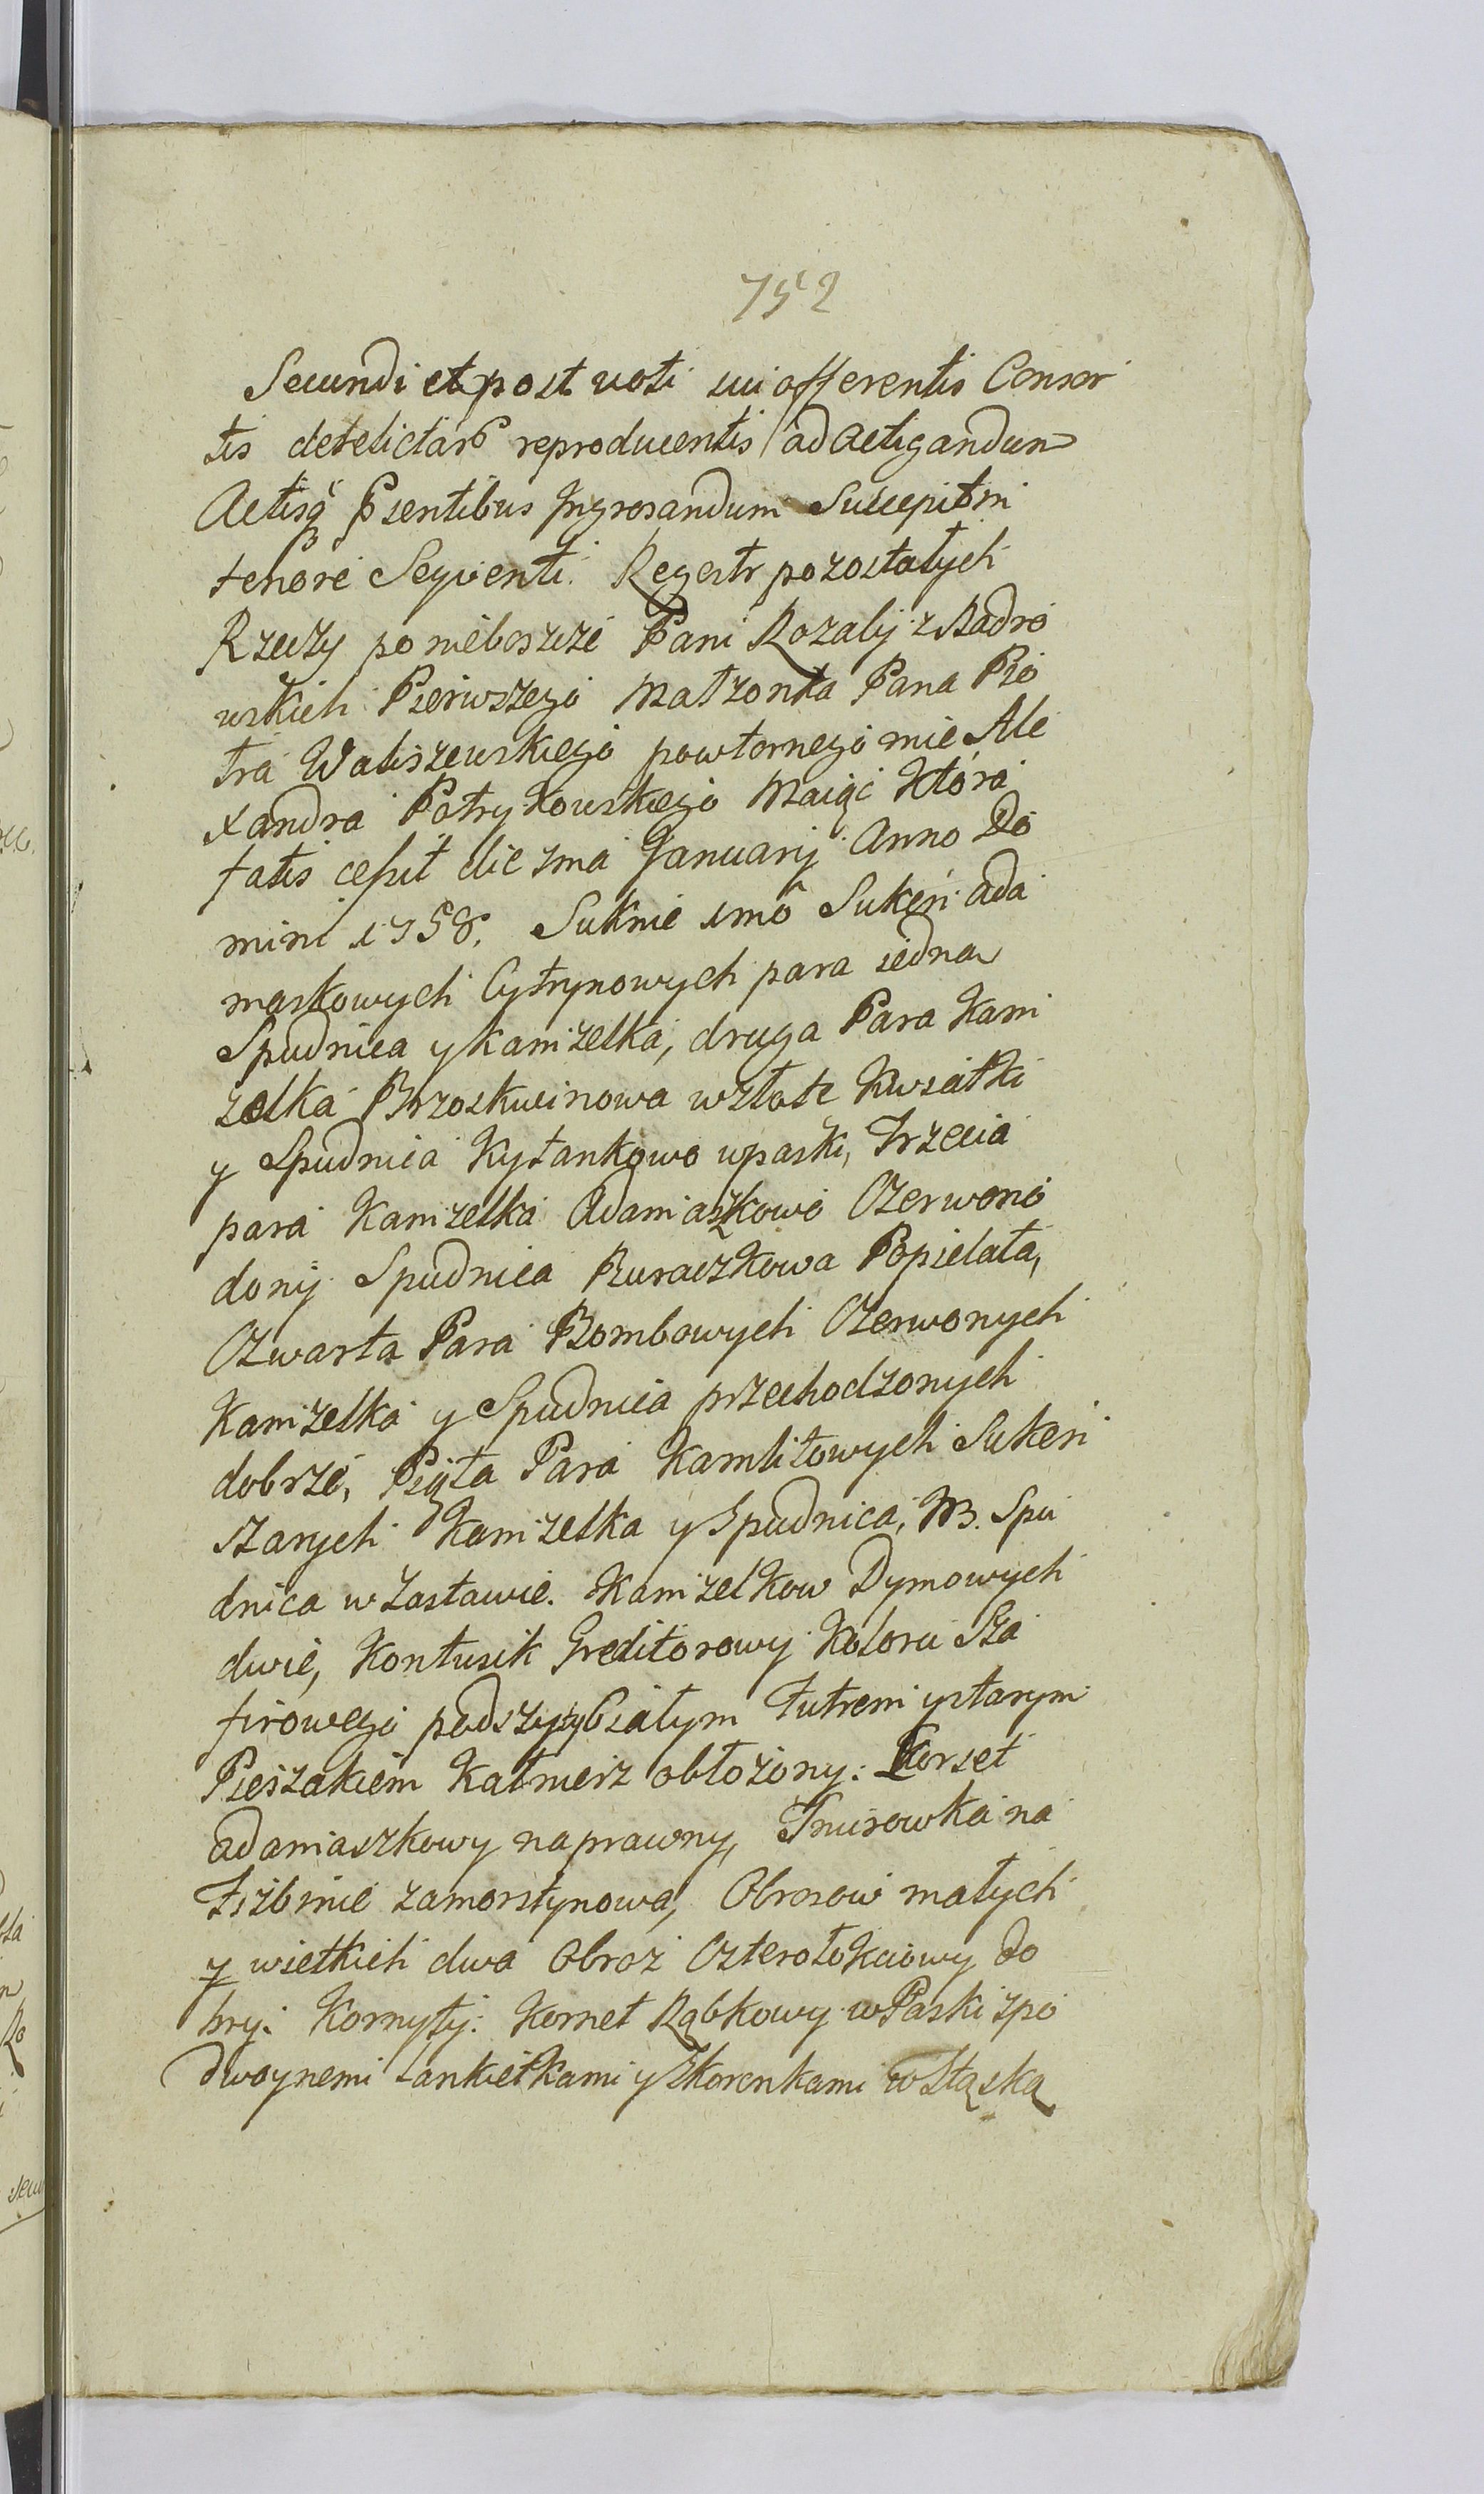 752
Secundi et post voti sui offerentis Consor
tis derelictarō reproducentis ad actigandum
Actisq̃ p̃sentibus Ingrosandum Suscepit in
tenore Seqventi. Regestr pozostałych
Rzeczy po nieboszcze Pani Rozalij z Nadro
wskich Pierwszego Małzonka Pana Pio
tra Waliszewskiego powtornego mie Ale
xandra Potrykowskiego Maiąc Ktora
fatis cessit die 2ma Januarij Anno Do
mini 1758. Suknie 1mo Sukeń ada
maskowych Cytrynowych para iedna
Spudnica y kamizelka, druga Para Kami
zelka Brzoskwinowa w złote Kwiatki
y Spudnica Kytankowa w paski, Trzecia
para Kamizelka Adamaszkowa Czerwono
dony Spudnica Buraczkowa Popielata,
Czwarta Para Bombowych Czerwonych
Kamizelka y Spudnica przechodzonych
dobrze, Piąta Para Kamlitowych Sukeń
szarych Kamizelka y Spudnica, NB. Spu
dnica w zastawie. Kamizelkow Dymowych
dwie, Kontusik Greditorowy Koloru Sza
firowego podszyty białym Futrem y starym
Pieszakiem Kałnierz obłożony: Korset
adamaszkowy naprawny, Snurowka na
Fiżbinie zamorstynowa, Obrosow małych
y wielkich dwa Obroz Czterołokciowy do
bry. Kornyty: Kornet Rąbkowy w Paski zpo
dwoynemi tankietkami y Zkoronkami wstąską